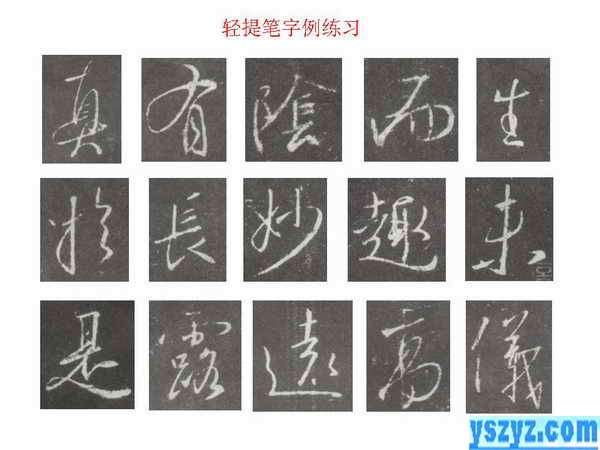 轻提笔字例练习
真有陰而生
於長妙趣
是露遠高儀
yszyz.com